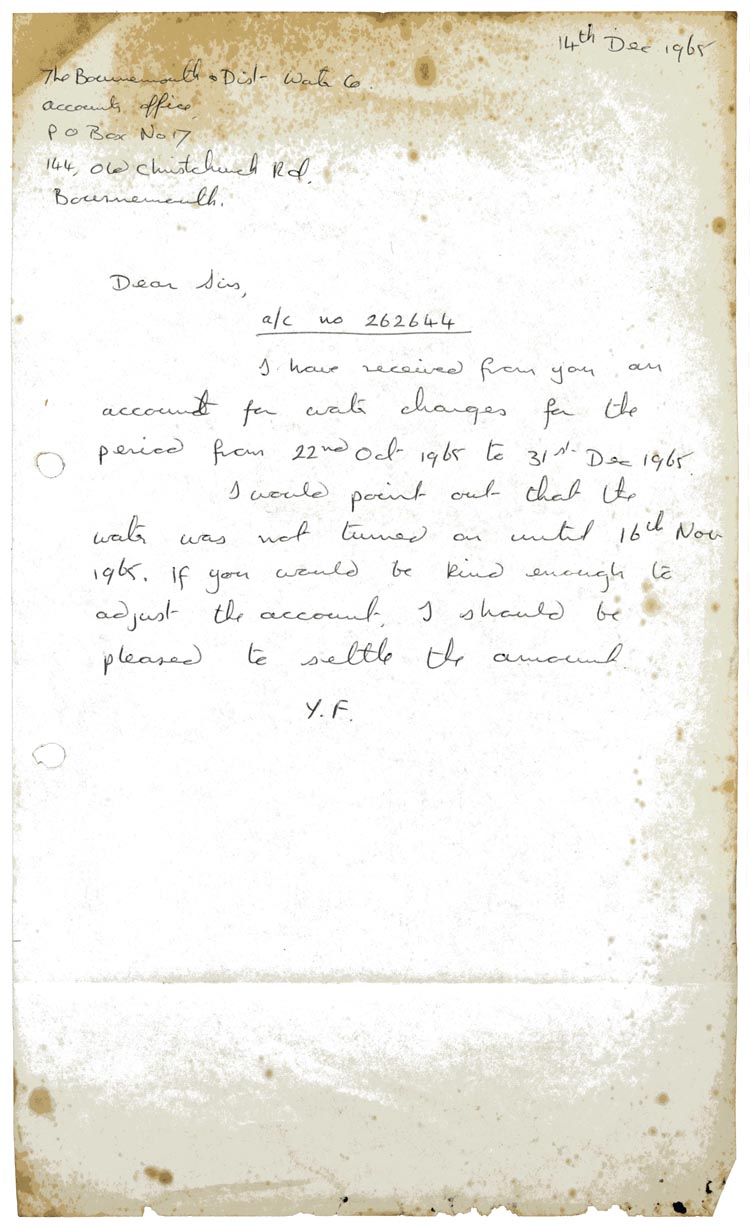 14th Dec 1965
The Bournemouth & Dist Water Co.
accounts office,
P O Box No 17
144, Old Christchurch Rd.
Bournemouth.
Dear Sirs,
a/c no 262644
I have received from you an
account for water charges for the
period from 22nd Oct 1965 to 31st Dec 1965.
I would point out that the
water was not turned on until 16th Nov
1965. If you would be kind enough to
adjust the account, I should be
pleased to settle the amount.
Y.F.